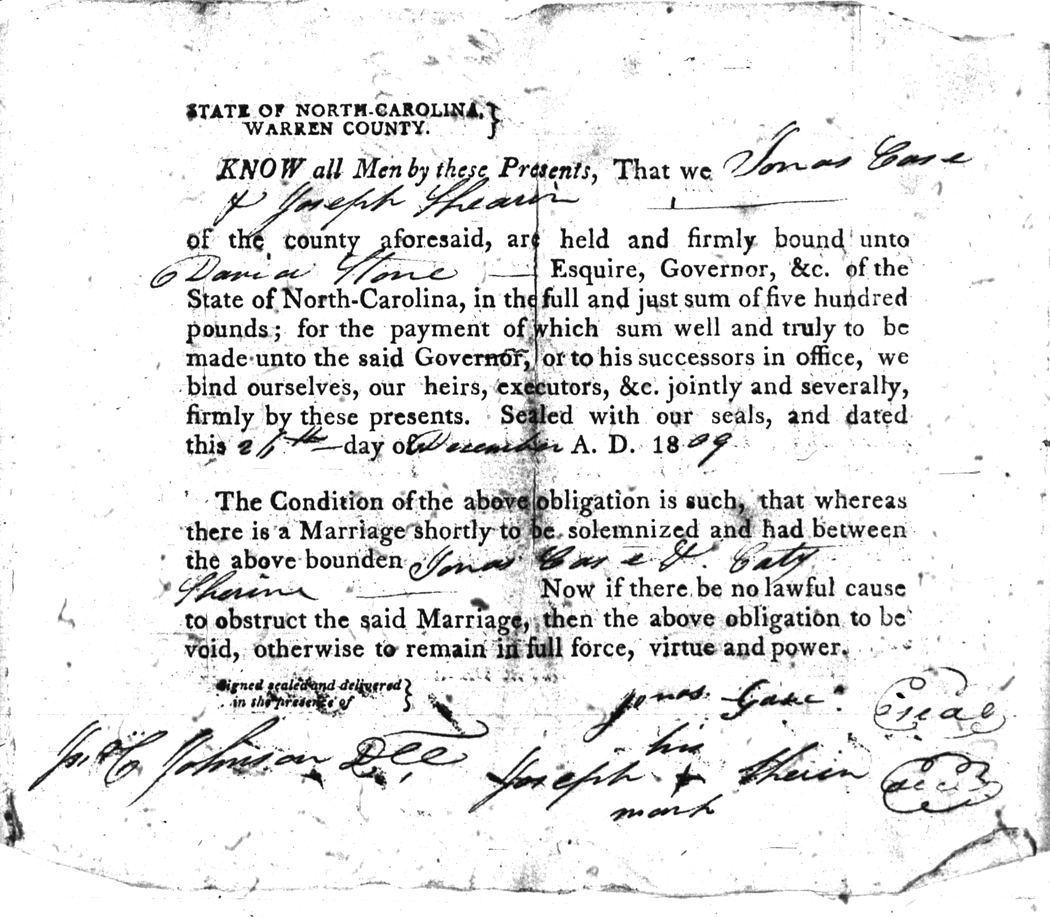 STATE OF NORTH-CAROLINA, }
WARREN COUNTY.
KNOW all Men by these Presents, That we Jonas Case
& Joseph Shearin
of the county aforesaid, are held and firmly bound unto
David Stone — Esquire, Governor, &c. of the
State of North-Carolina, in the full and just sum of five hundred
pounds; for the payment of which sum well and truly to be
made unto the said Governor, or to his successors in office, we
bind ourselves, our heirs, executors, &c. jointly and severally,
firmly by these presents. Sealed with our seals, and dated
this 26th day of December A. D. 1809
The Condition of the above obligation is such, that whereas
there is a Marriage shortly to be solemnized and had between
the above bounden Jonas Case & Caty
Sherine Now if there be no lawful cause
to obstruct the said Marriage, then the above obligation to be
void, otherwise to remain in full force, virtue and power.
Signed sealed and delivered }
in the presence of
Jonas Case (seal)
his
Johnson Joseph + Sherin (seal)
mark